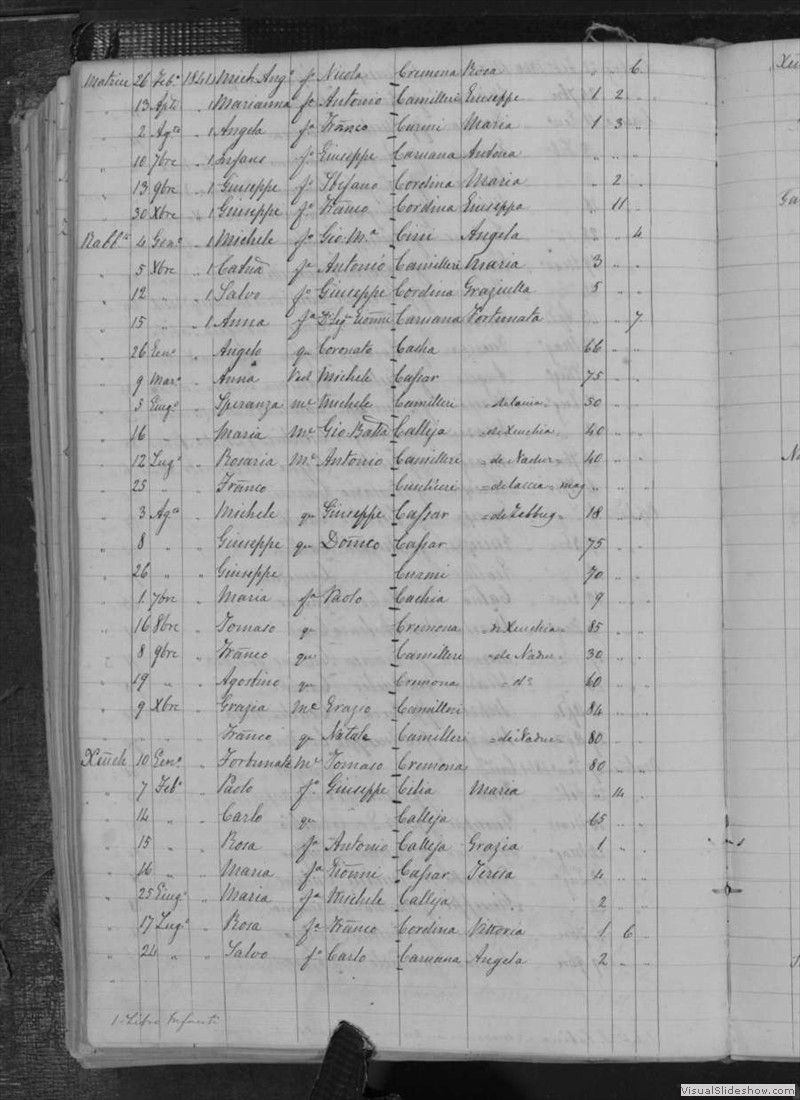 Matrice 26 Feb.º 1841 1 Mich Ang.º fº Nicola Cremona Rosa " " 6
" 13 Aple " 1 Marianna fª Antonio Camilleri Giuseppa 1 2 "
" 2 Ag.to " 1 Angela fª Franco Curmi Maria 1 3 "
" 10 7bre " 1 Infans fº Giuseppe Caruana Antonia " " "
" 13 9bre " 1 Giuseppe fº Stefano Cordina Maria " 2 "
" 30 Xbre " 1 Giuseppe fº Franco Cordina Giuseppa " 11 "
Rabb.to 4 Gen.º " 1 Michele fº Gio M.ª Cini Angela " " 4
" 5 Xbre " 1 Catña fª Antonio Camilleri Maria 3 " "
" 12 " " 1 Salvo fº Giuseppe Cordina Graziulla 5 " "
" 15 " " 1 Anna fª Gioñni Caruana Fortunata " " 7
" 26 Gen.º " Angelo qm Coronato Cachia 66 " "
" 9 Mar.º " Anna Ved Michele Cassar 75 " "
" 5 Giug.º " Speranza Me Michele Camilleri 50 " "
" 16 " " Maria Me Gio Batta Calleja =di Xeuchia= 40 " "
" 12 Lug.º " Rosaria Me Antonio Camilleri =de Nadur= 40 " "
" 25 " " Franco Cuschieri " "
" 3 Ag.to " Michele qm Giuseppe Cassar =de Zebbug= 18 " "
" 8 " " Giuseppe qm Domco Cassar 75 " "
" 26 " " Giuseppe Curmi 70 " "
" 1 7bre " Maria fª Paolo Cachia 9 " "
" 16 8bre " Tomaso qm Cremona =di Xeuchia= 85 " "
" 8 9bre " Franco qm Camilleri =de Nadur= 30 " "
" 19 " " Agostino qm Cremona =dº 60 " "
" 9 Xbre " Grazia Me Grazio Camilleri 84 " "
" " " Franco qm Natale Camilleri =de Nadur= 80 " "
Xeuch 10 Gen.º " Fortunata Me Tomaso Cremona 80 " "
" 7 Feb.º " Paolo fº Giuseppe Cilia Maria " 14 "
" 14 " " Carlo qm Calleja 65 " "
" 15 " " Rosa fª Antonio Calleja Grazia 1 " "
" 16 " " Maria fª Gioñni Cassar Teresa 4 " "
" 25 Giug.º " Maria fª Michele Calleja 2 " "
" 17 Lug.º " Rosa fª Franco Cordina Vittoria 1 6 "
" 24 " " Salvo fº Carlo Caruana Angela 2 " "
1. Libro Infanti
VisualSlideshow.com